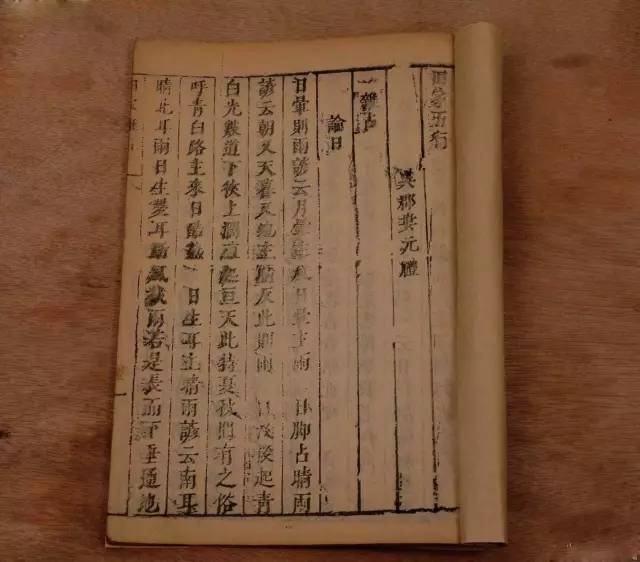 田家五行
吳郡婁元禮
雜占
論日
日暈則雨諺云月暈主風日暈主雨 日脚占晴雨
諺云朝又天暮又地主晴反此則雨 日没後起青
白光數道下狹上濶直起亘天此特夏秋間有之俗
呼青白路主來日酷熱 日生耳主晴雨諺云南耳
晴北耳雨日生雙耳斷風截雨若是長而下垂通地